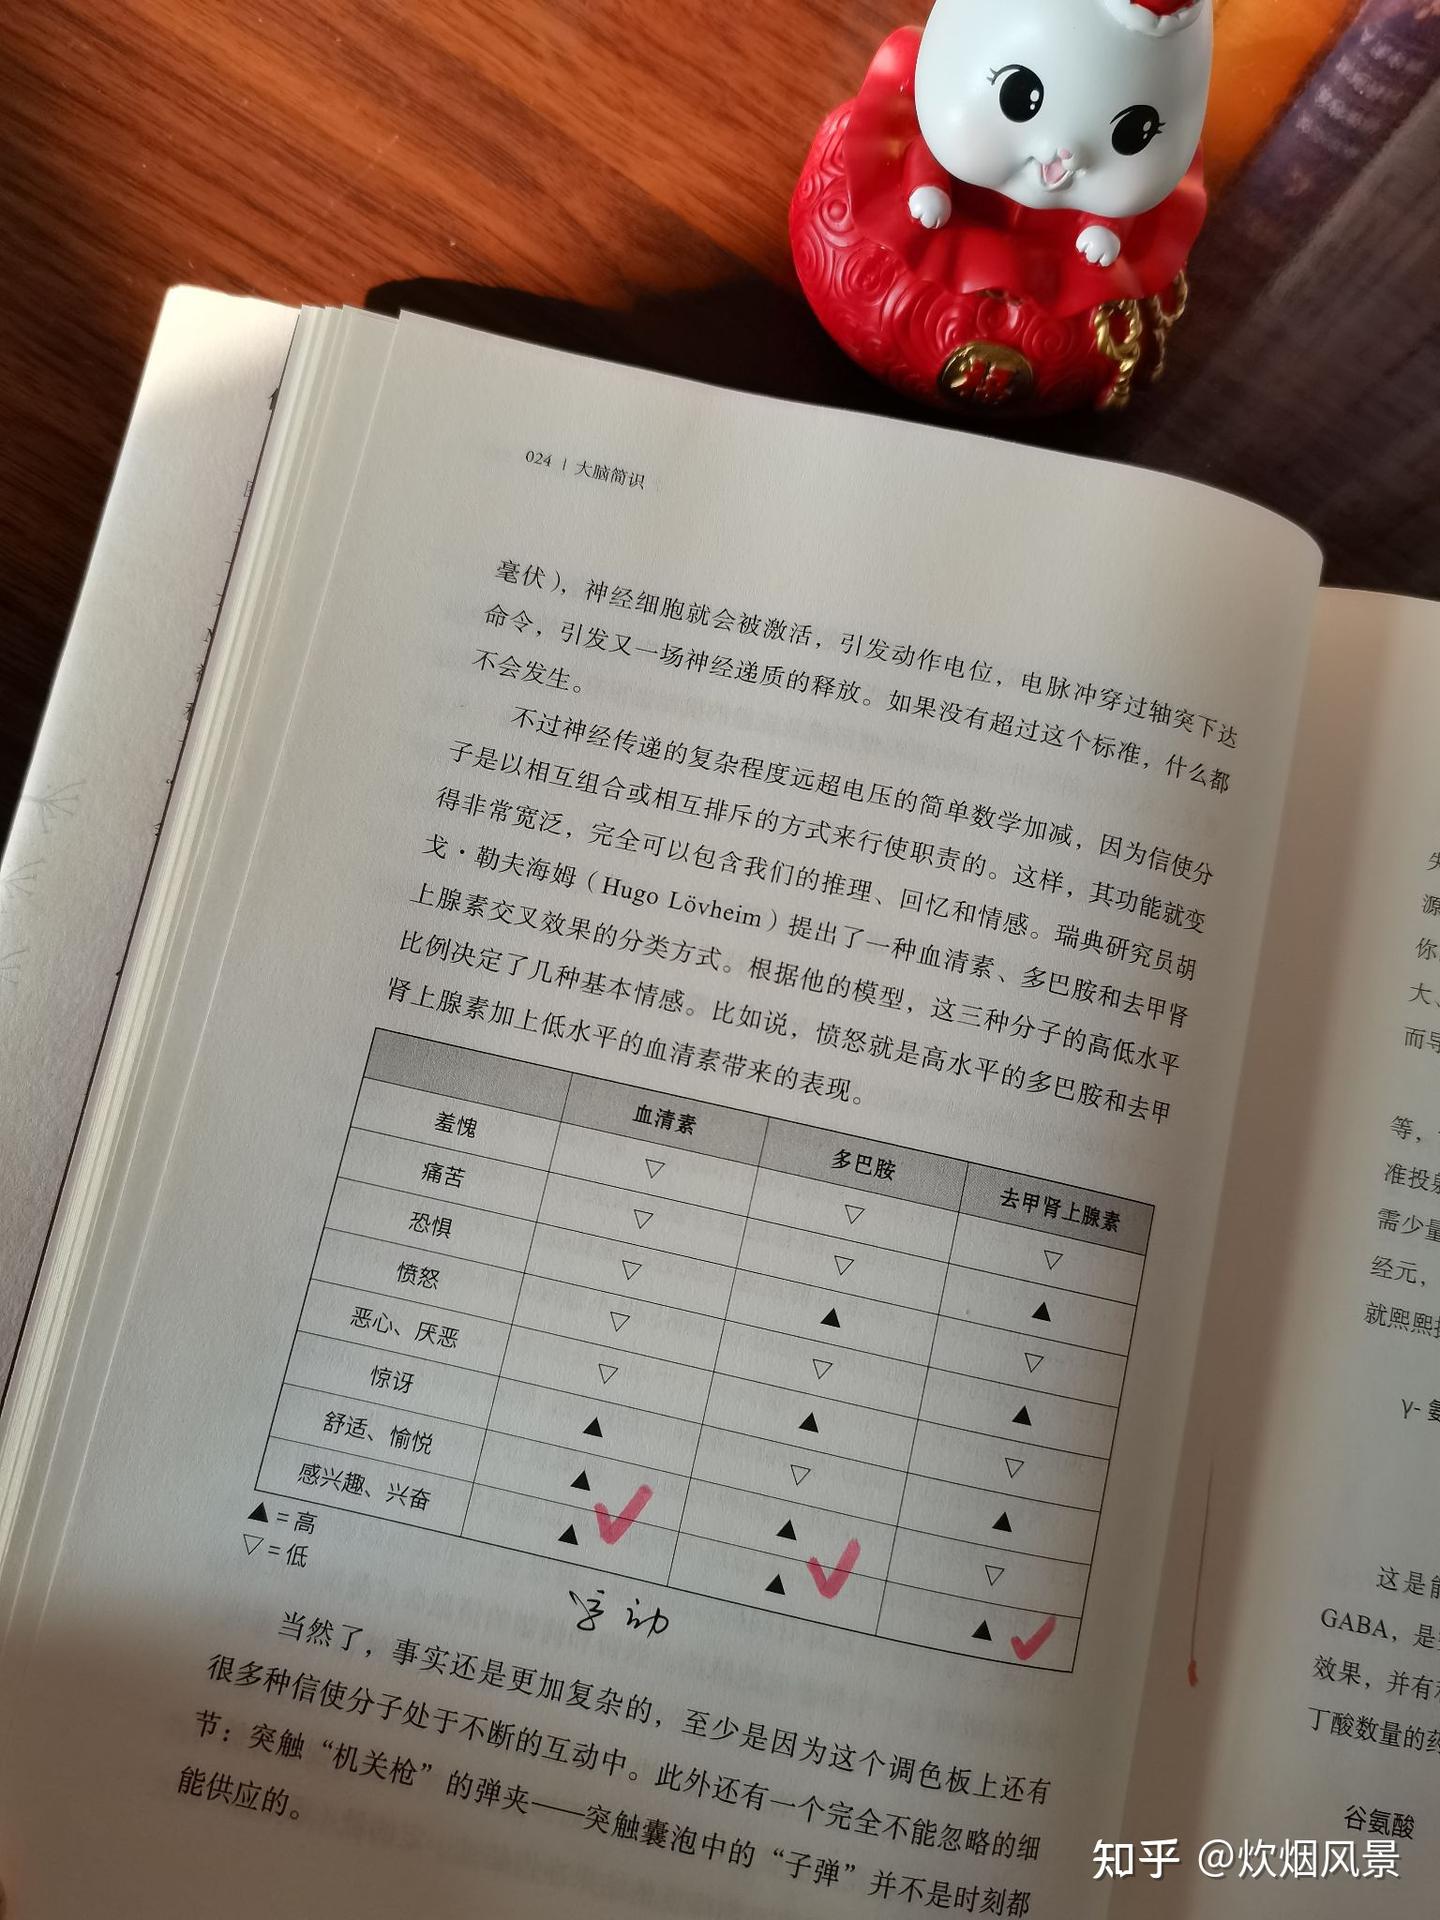 024 | 大脑简识
毫伏），神经细胞就会被激活，引发动作电位，电脉冲穿过轴突下达
命令，引发又一场神经递质的释放。如果没有超过这个标准，什么都
不会发生。
不过神经传递的复杂程度远超电压的简单数学加减，因为信使分
子是以相互组合或相互排斥的方式来行使职责的。这样，其功能就变
得非常宽泛，完全可以包含我们的推理、回忆和情感。瑞典研究员胡
戈·勒夫海姆（Hugo Lövheim）提出了一种血清素、多巴胺和去甲肾
上腺素交叉效果的分类方式。根据他的模型，这三种分子的高低水平
比例决定了几种基本情感。比如说，愤怒就是高水平的多巴胺和去甲
肾上腺素加上低水平的血清素带来的表现。
血清素 多巴胺 去甲肾上腺素
羞愧 ▽ ▽ ▽
痛苦 ▽ ▽ ▲
恐惧 ▽ ▲ ▽
愤怒 ▽ ▲ ▲
恶心、厌恶 ▲ ▽ ▽
惊讶 ▲ ▽ ▲
舒适、愉悦 ▲ ▲ ▽
感兴趣、兴奋 ▲ ▲ ▲
▲ = 高
▽ = 低
运动
当然了，事实还是更加复杂的，至少是因为这个调色板上还有
很多种信使分子处于不断的互动中。此外还有一个完全不能忽略的细
节：突触“机关枪”的弹夹——突触囊泡中的“子弹”并不是时刻都
能供应的。
源
你
大、
而导
等，
准投射
需少量
经元，
就熙熙
γ- 氨
这是能
GABA，是
效果，并有
丁酸数量的药
谷氨酸
福
知乎 @炊烟风景